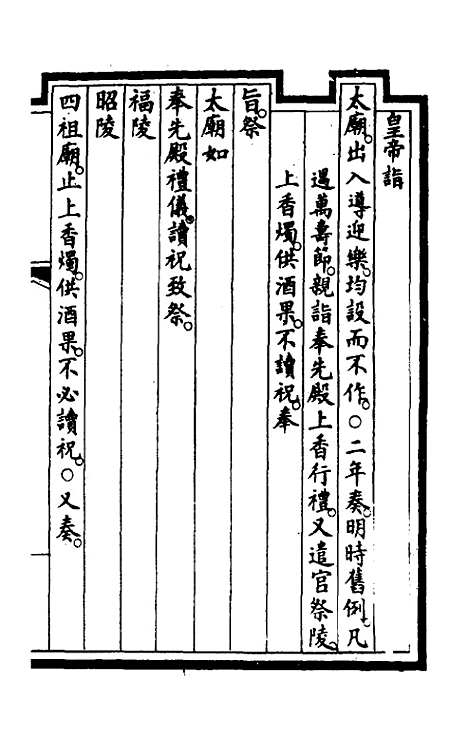 皇帝詣
太廟。出入導迎樂。均設而不作。○二年奏。明時舊例。凡
遇萬壽節。親詣奉先殿上香行禮。又遣官祭陵。
上香燭。供酒果。不讀祝。奉
旨。祭
太廟如
奉先殿禮儀。讀祝致祭。
福陵
昭陵
四祖廟。止上香燭。供酒果。不必讀祝。○又奏。